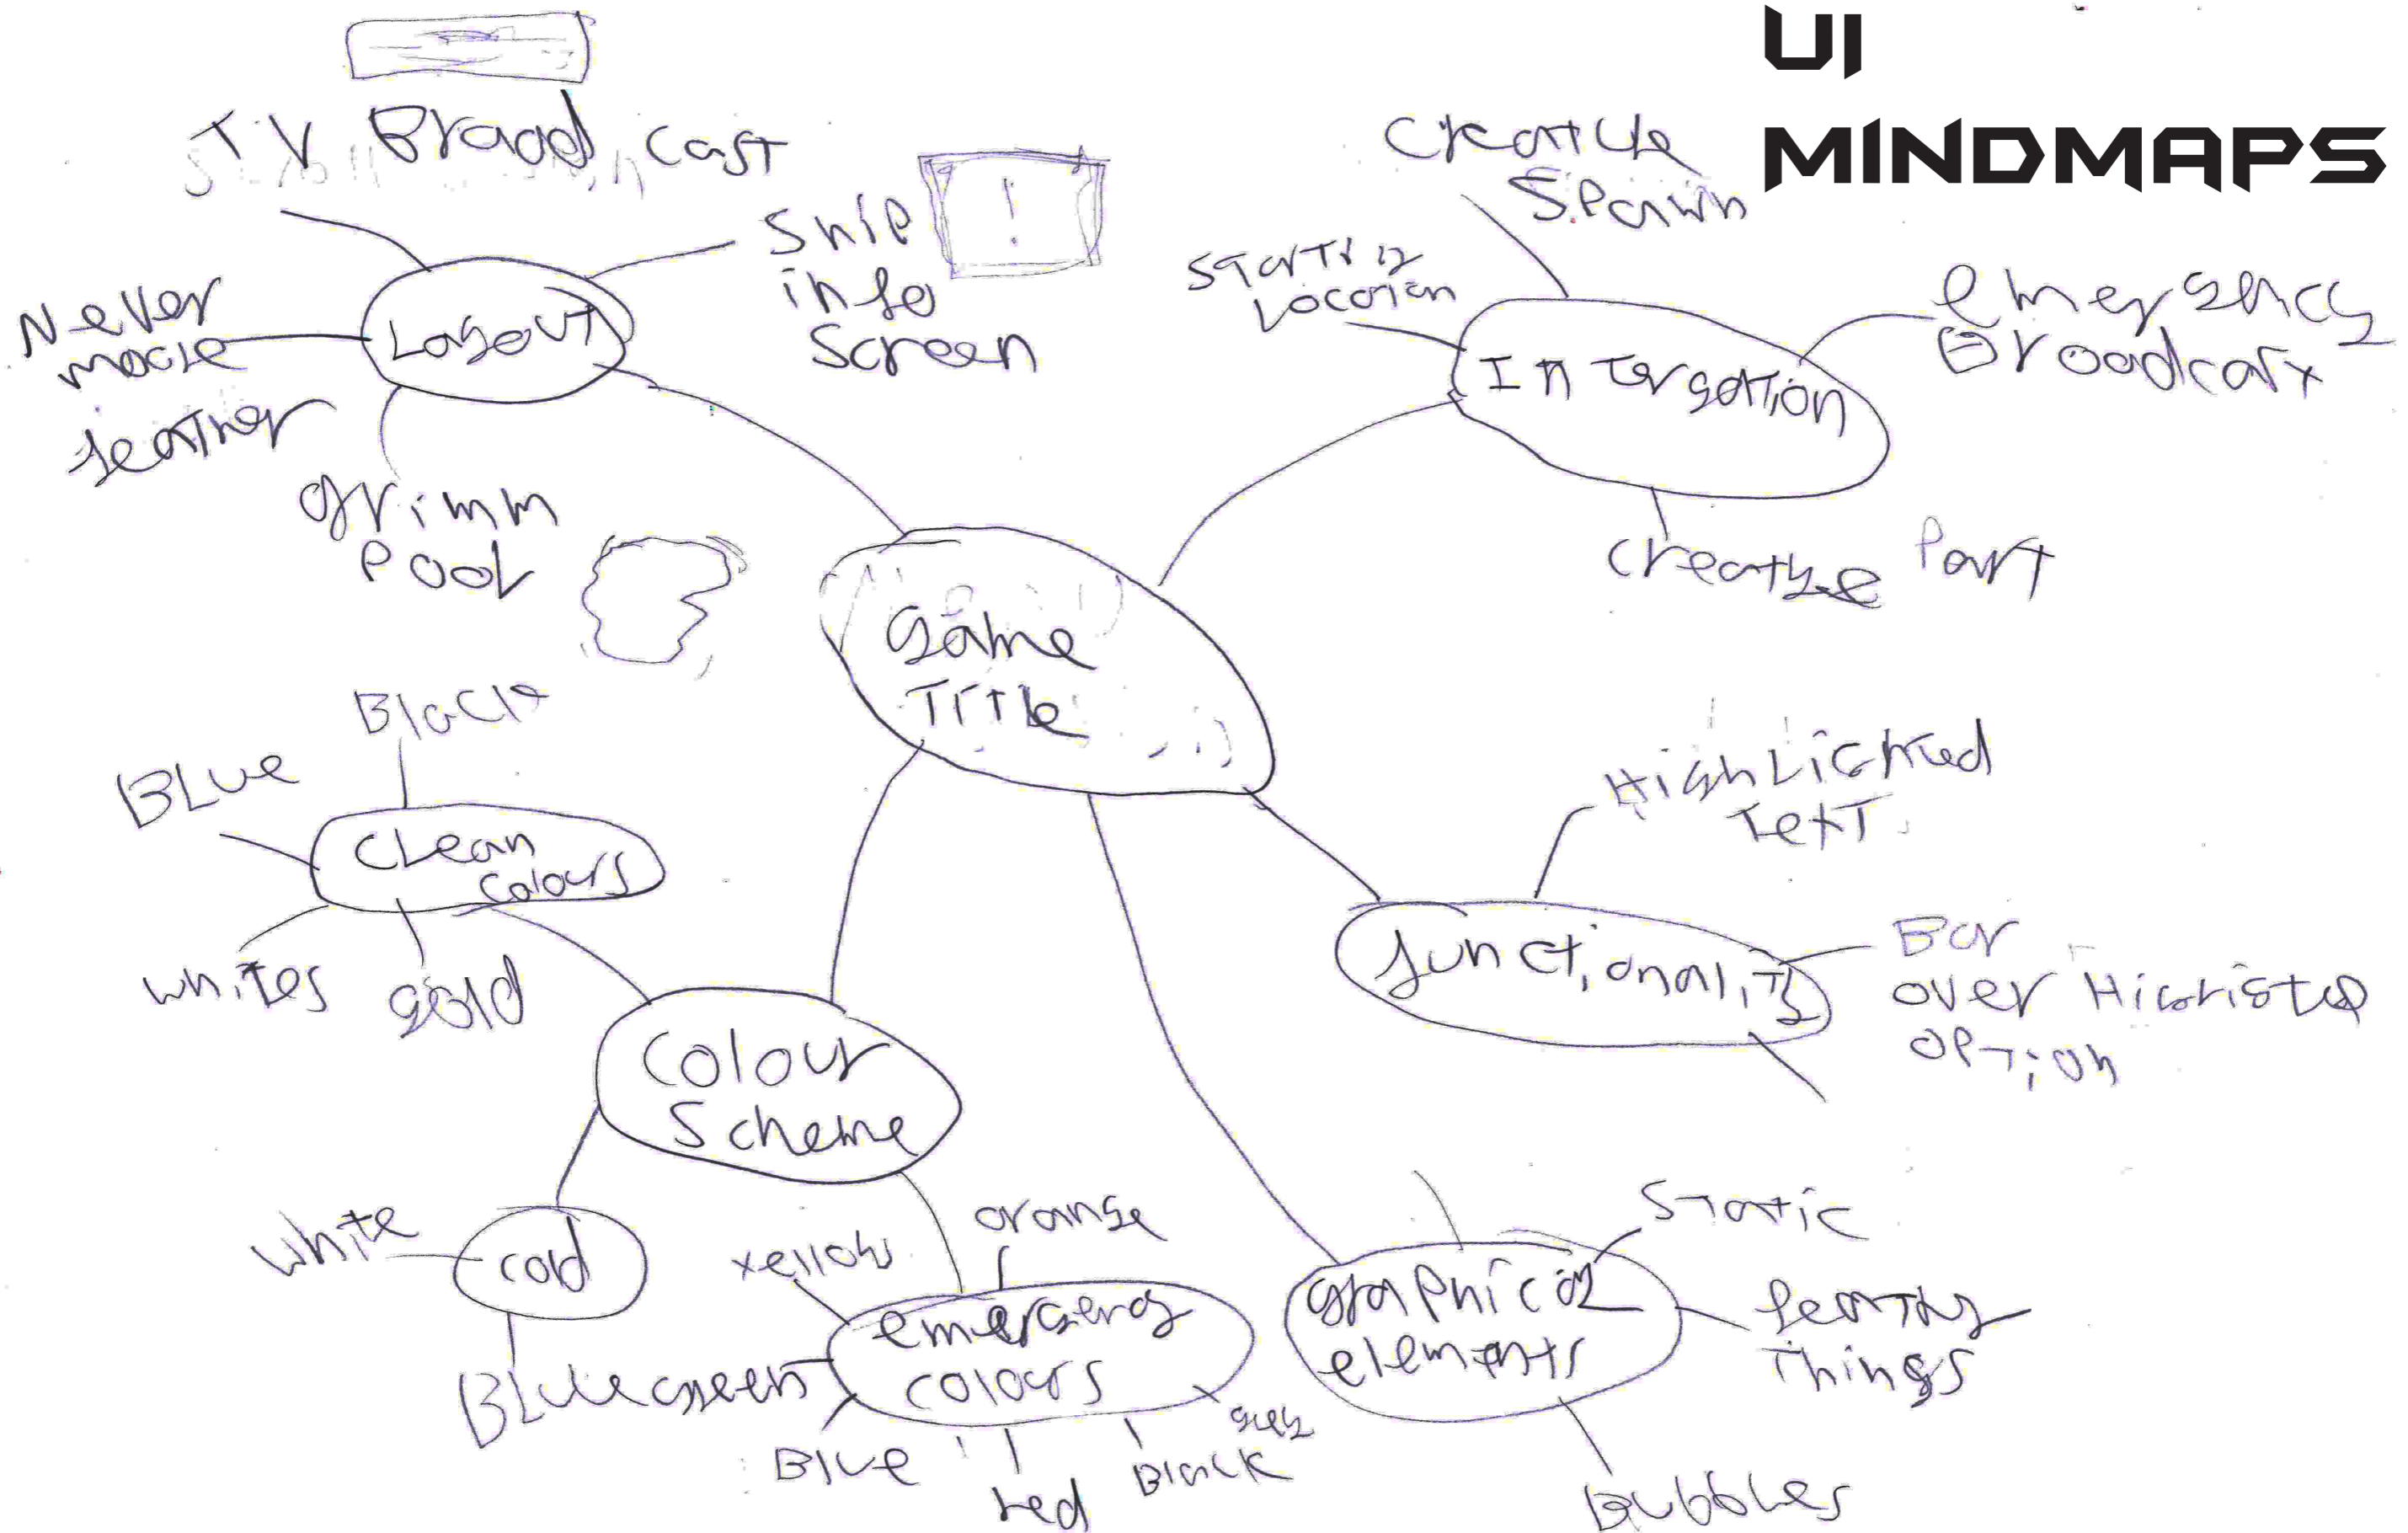 UI
MINDMAPS
TV Broad cast
Ship
info
Screen
Never
more
feather
Layout
grimm
pool
Creature
Spawn
Starting
Location
Intergation
emergency
Broadcast
creature Part
Game
Title
Black
BLue
Clean
colours
whites
gold
Colour
Scheme
cold
white
BLue
yellow
orange
emergency
colours
green
Blue
red
Black
grey
functionality
HighLighted
Text
Bar
over
option
graphical
elements
Static
Things
Bubbles